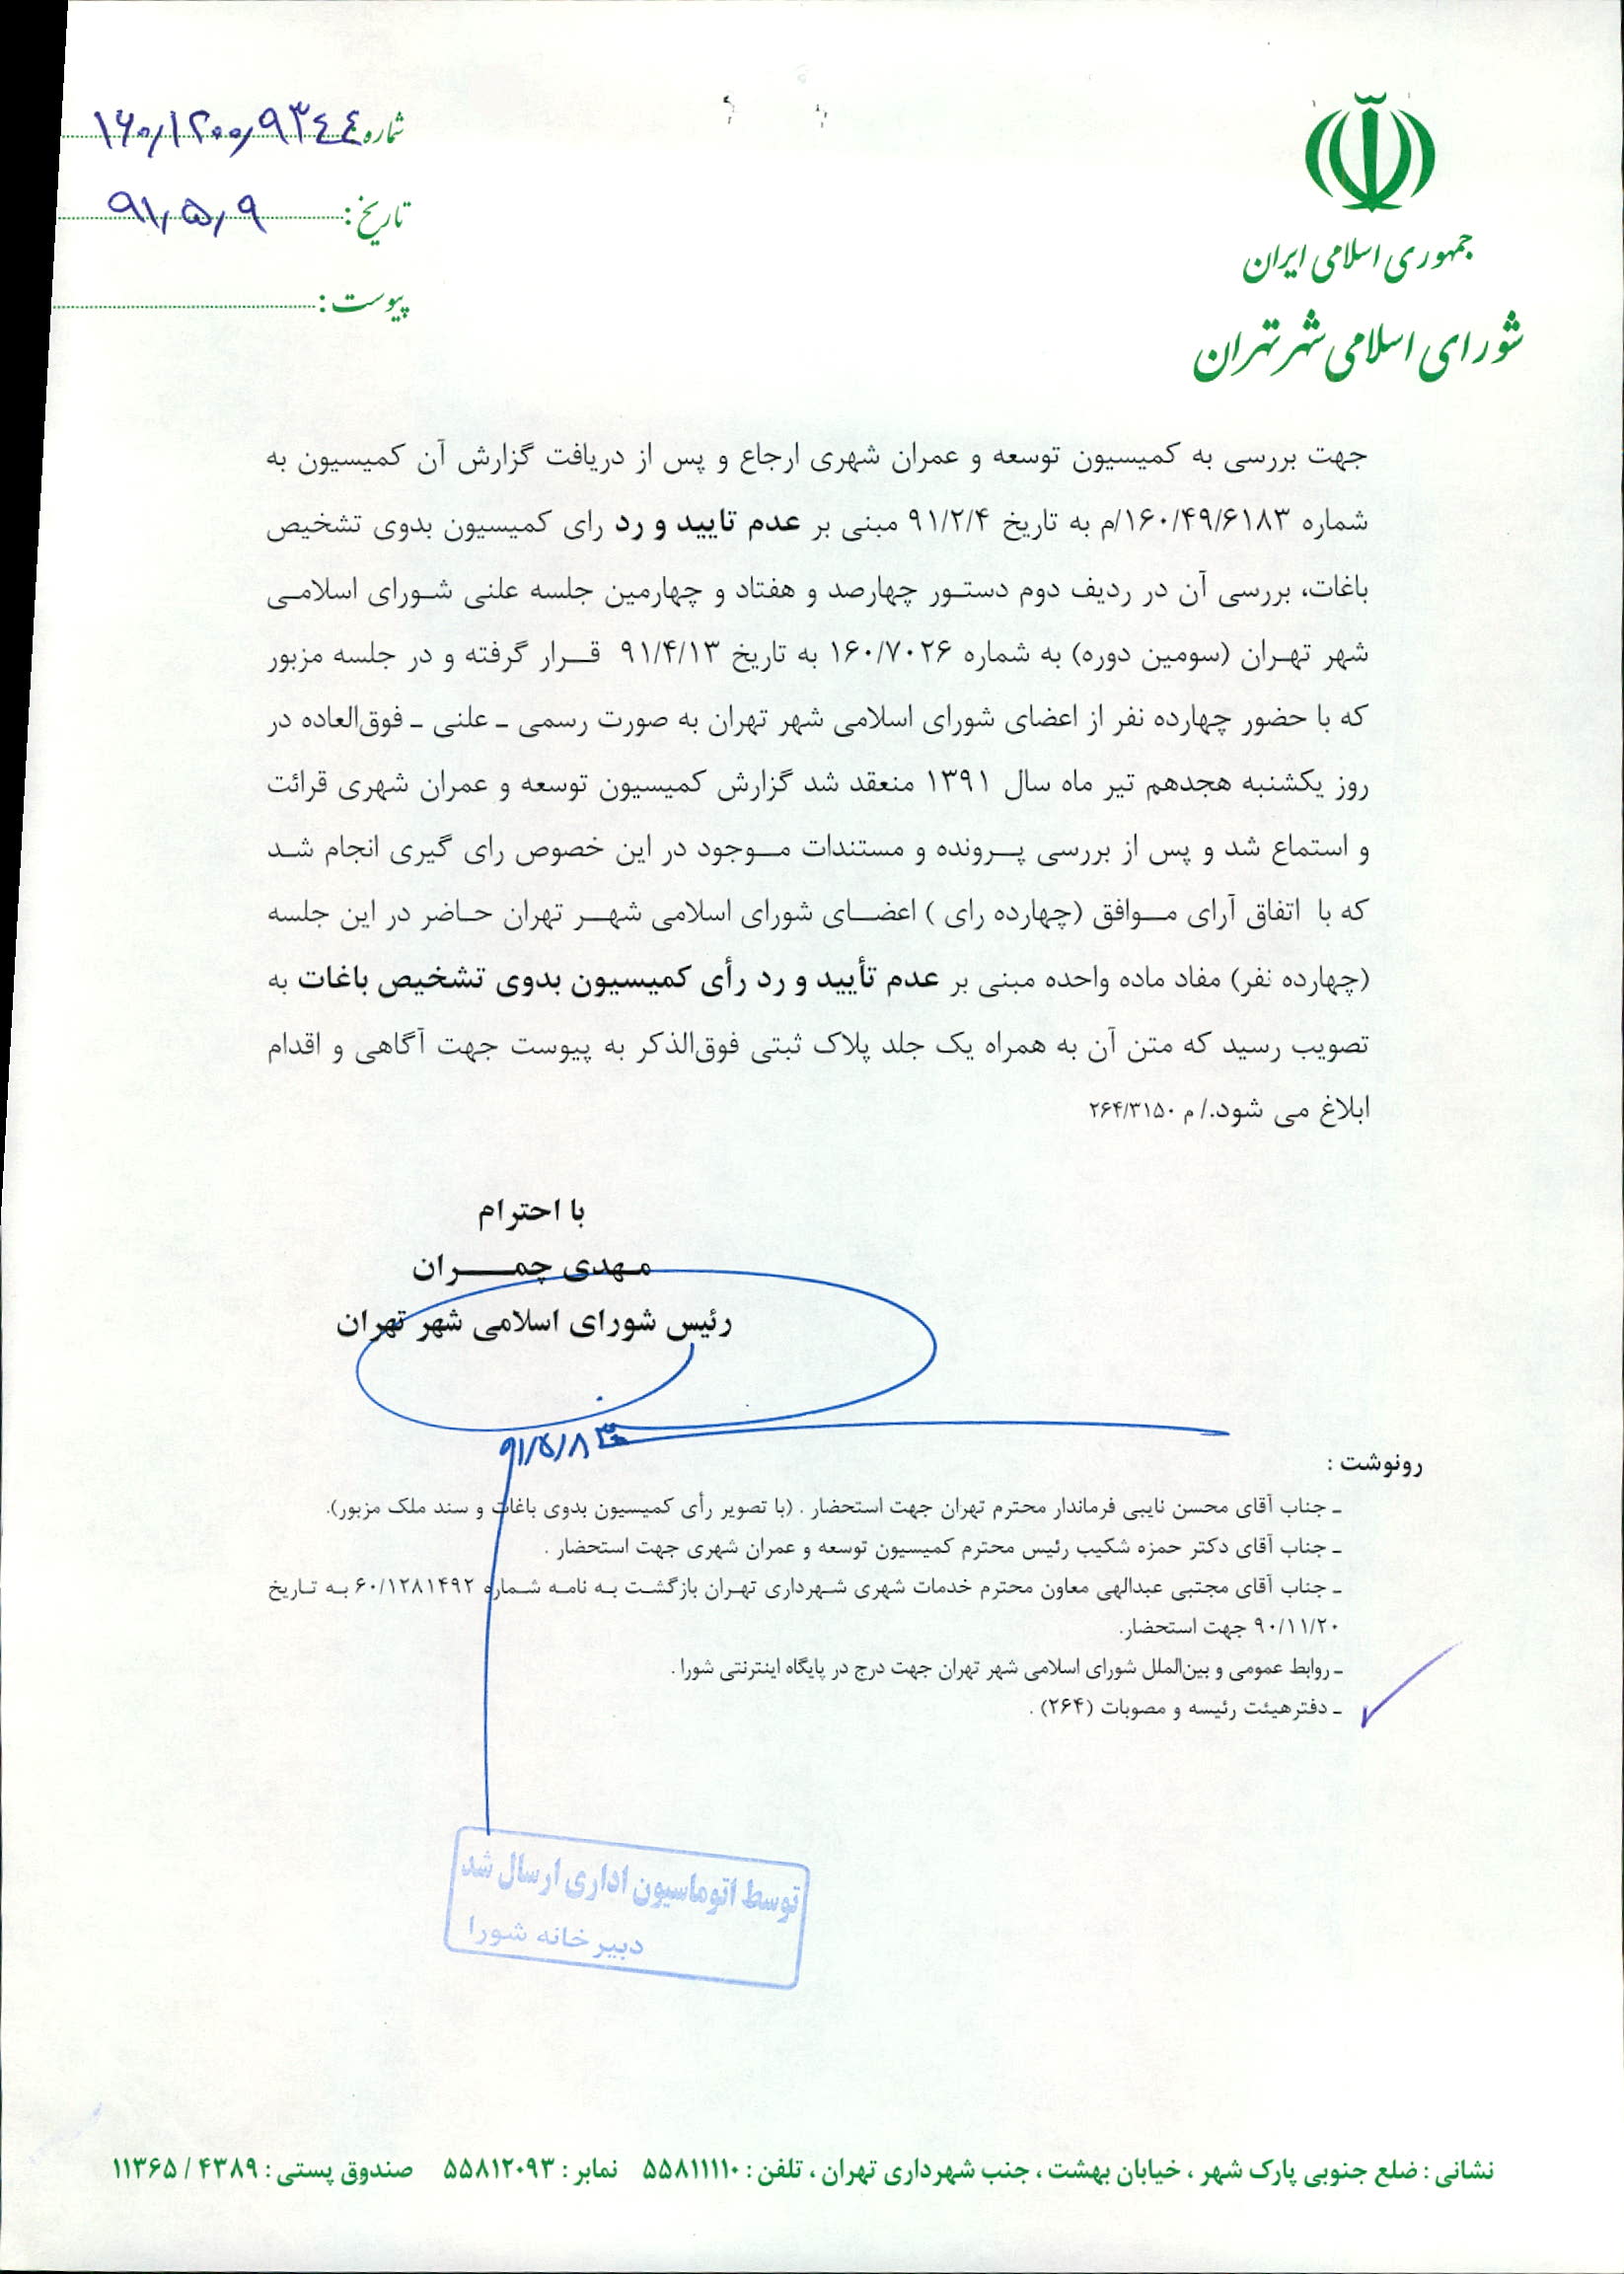 جمهوری اسلامی ایران
شورای اسلامی شهر تهران
شماره: ۱۶۰/۱۲۰۰/۹۳۴۴
تاریخ: ۹۱/۵/۹
پیوست:
جهت بررسی به کمیسیون توسعه و عمران شهری ارجاع و پس از دریافت گزارش آن کمیسیون به
شماره ۱۶۰/۴۹/۶۱۸۳/م به تاریخ ۹۱/۲/۴ مبنی بر عدم تایید و رد رای کمیسیون بدوی تشخیص
باغات، بررسی آن در ردیف دوم دستـور چهارصد و هفتاد و چهارمین جلسه علنی شـورای اسلامـی
شهر تهـران (سومین دوره) به شماره ۱۶۰/۷۰۲۶ به تاریخ ۹۱/۴/۱۳ قــرار گرفته و در جلسه مزبور
که با حضور چهارده نفر از اعضای شورای اسلامی شهر تهران به صورت رسمی ـ علنی ـ فوق‌العاده در
روز یکشنبه هجدهم تیر ماه سال ۱۳۹۱ منعقد شد گزارش کمیسیون توسعه و عمران شهری قرائت
و استماع شد و پس از بررسی پــرونده و مستندات مــوجود در این خصوص رای گیری انجام شـد
که با اتفاق آرای مــوافق (چهارده رای ) اعضــای شورای اسلامی شهــر تهران حـاضر در این جلسه
(چهارده نفر) مفاد ماده واحده مبنی بر عدم تأیید و رد رأی کمیسیون بدوی تشخیص باغات به
تصویب رسید که متن آن به همراه یک جلد پلاک ثبتی فوق‌الذکر به پیوست جهت آگاهی و اقدام
ابلاغ می شود./ م ۲۶۴/۳۱۵۰
با احترام
مـهدی چمـــــران
رئیس شورای اسلامی شهر تهران
۹۱/۵/۸
رونوشت :
ـ جناب آقای محسن نایبی فرماندار محترم تهران جهت استحضار . (با تصویر رأی کمیسیون بدوی باغات و سند ملک مزبور).
ـ جناب آقای دکتر حمزه شکیب رئیس محترم کمیسیون توسعه و عمران شهری جهت استحضار .
ـ جناب آقای مجتبی عبدالهی معاون محترم خدمات شهری شـهرداری تهـران بازگشـت بـه نامـه شـماره ۶۰/۱۲۸۱۴۹۲ بـه تـاریخ
۹۰/۱۱/۲۰ جهت استحضار.
ـ روابط عمومی و بین‌الملل شورای اسلامی شهر تهران جهت درج در پایگاه اینترنتی شورا .
ـ دفترهیئت رئیسه و مصوبات (۲۶۴) .
توسط اتوماسیون اداری ارسال شد
دبیرخانه شورا
نشانی : ضلع جنوبی پارک شهر ، خیابان بهشت ، جنب شهرداری تهران ، تلفن : ۵۵۸۱۱۱۱۰ نمابر : ۵۵۸۱۲۰۹۳ صندوق پستی : ۴۳۸۹ / ۱۱۳۶۵